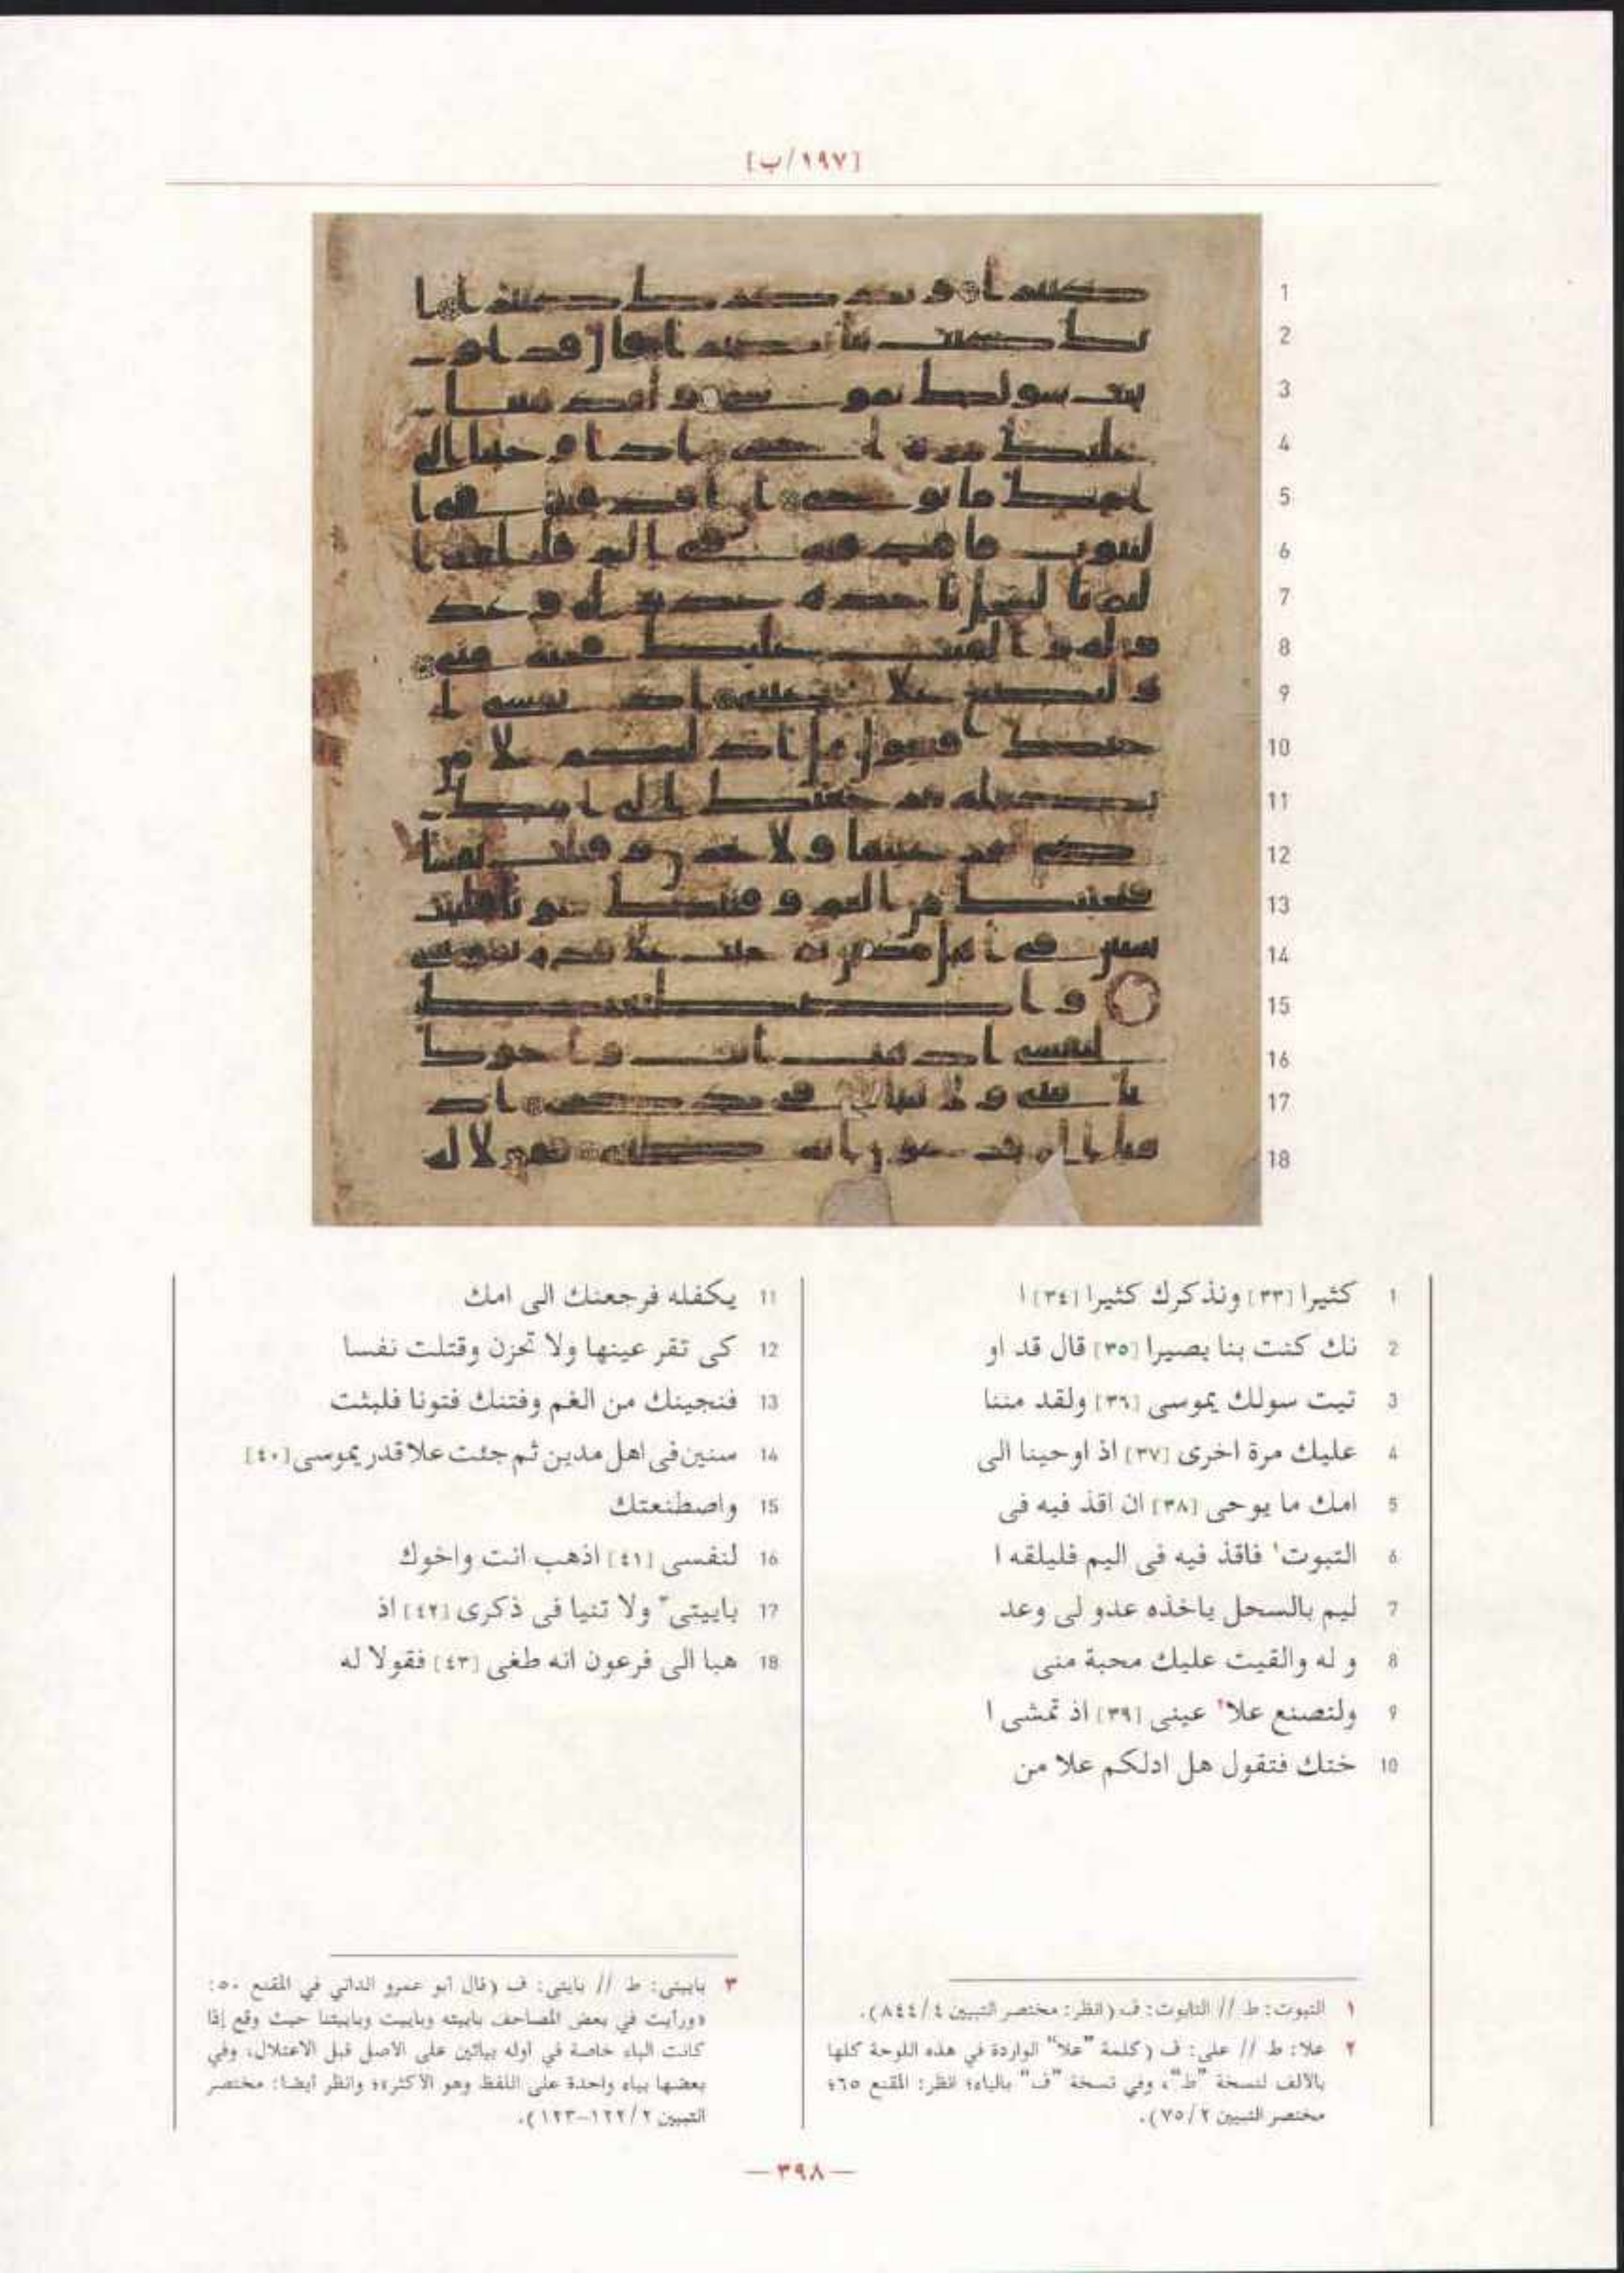 [١٩٧/ب]
1 كثيرا [٣٣] ونذكرك كثيرا [٣٤] ا
2 نك كنت بنا بصيرا [٣٥] قال قد او
3 تيت سولك يموسى [٣٦] ولقد مننا
4 عليك مرة اخرى [٣٧] اذ اوحينا الى
5 امك ما يوحى [٣٨] ان اقذ فيه فى
6 التبوت١ فاقذ فيه فى اليم فليلقه ا
7 ليم بالسحل ياخذه عدو لى وعد
8 و له والقيت عليك محبة منى
9 ولتصنع علا٢ عينى [٣٩] اذ تمشى ا
10 ختك فتقول هل ادلكم علا من
11 يكفله فرجعنك الى امك
12 كى تقر عينها ولا تحزن وقتلت نفسا
13 فنجينك من الغم وفتنك فتونا فلبثت
14 سنين فى اهل مدين ثم جئت علا قدر يموسى [٤٠]
15 واصطنعتك
16 لنفسى [٤١] اذهب انت واخوك
17 باييتى٣ ولا تنيا فى ذكرى [٤٢] اذ
18 هبا الى فرعون انه طغى [٤٣] فقولا له
١ التبوت: ط // التابوت: ف (انظر: مختصر التبيين ٤/ ٨٤٤).
٢ علا: ط // على: ف (كلمة "علا" الواردة في هذه اللوحة كلها
بالألف لنسخة "ط"، وفي نسخة "ف" بالياء؛ انظر: المقنع ٦٥؛
مختصر التبيين ٢/ ٧٥).
٣ باييتى: ط // بايتى: ف (قال أبو عمرو الداني في المقنع ٥٠:
«ورأيت في بعض المصاحف باييته وباييت وباييتنا حيث وقع إذا
كانت الباء خاصة في أوله بيائين على الأصل قبل الاعتلال، وفي
بعضها بياء واحدة على اللفظ وهو الأكثر»؛ وانظر أيضا: مختصر
التبيين ٢/ ١٢٢-١٢٣).
— ٣٩٨ —